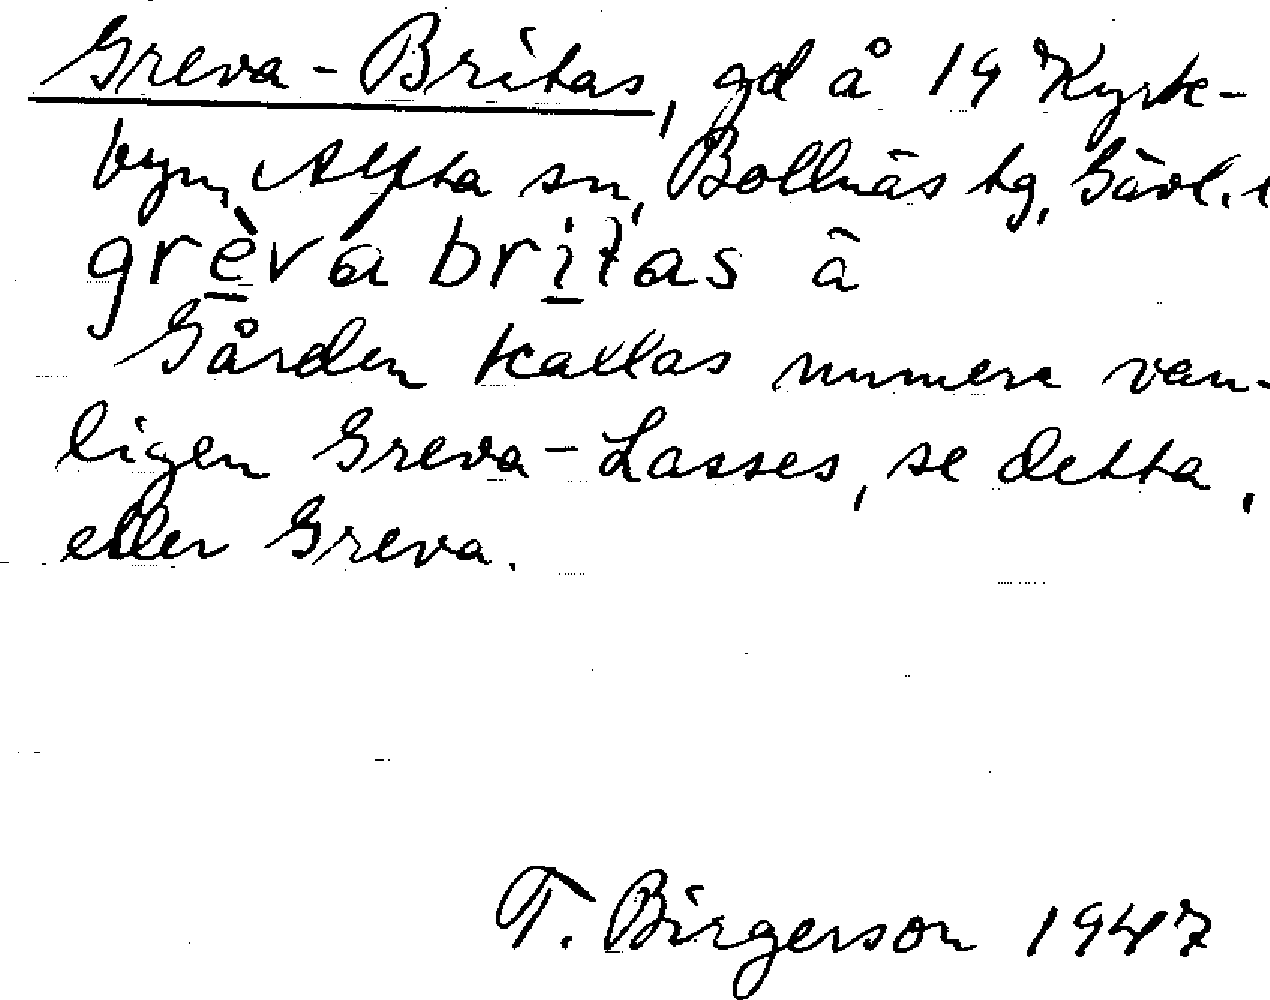 Greva-Britas, gd å 19 Kyrk-
byn, Alfta sn, Bollnäs tg, Gävl. l
grèva britas ä
Gården kallas numera van-
ligen Greva-Lasses, se detta,
eller Greva.
T. Birgerson 1947